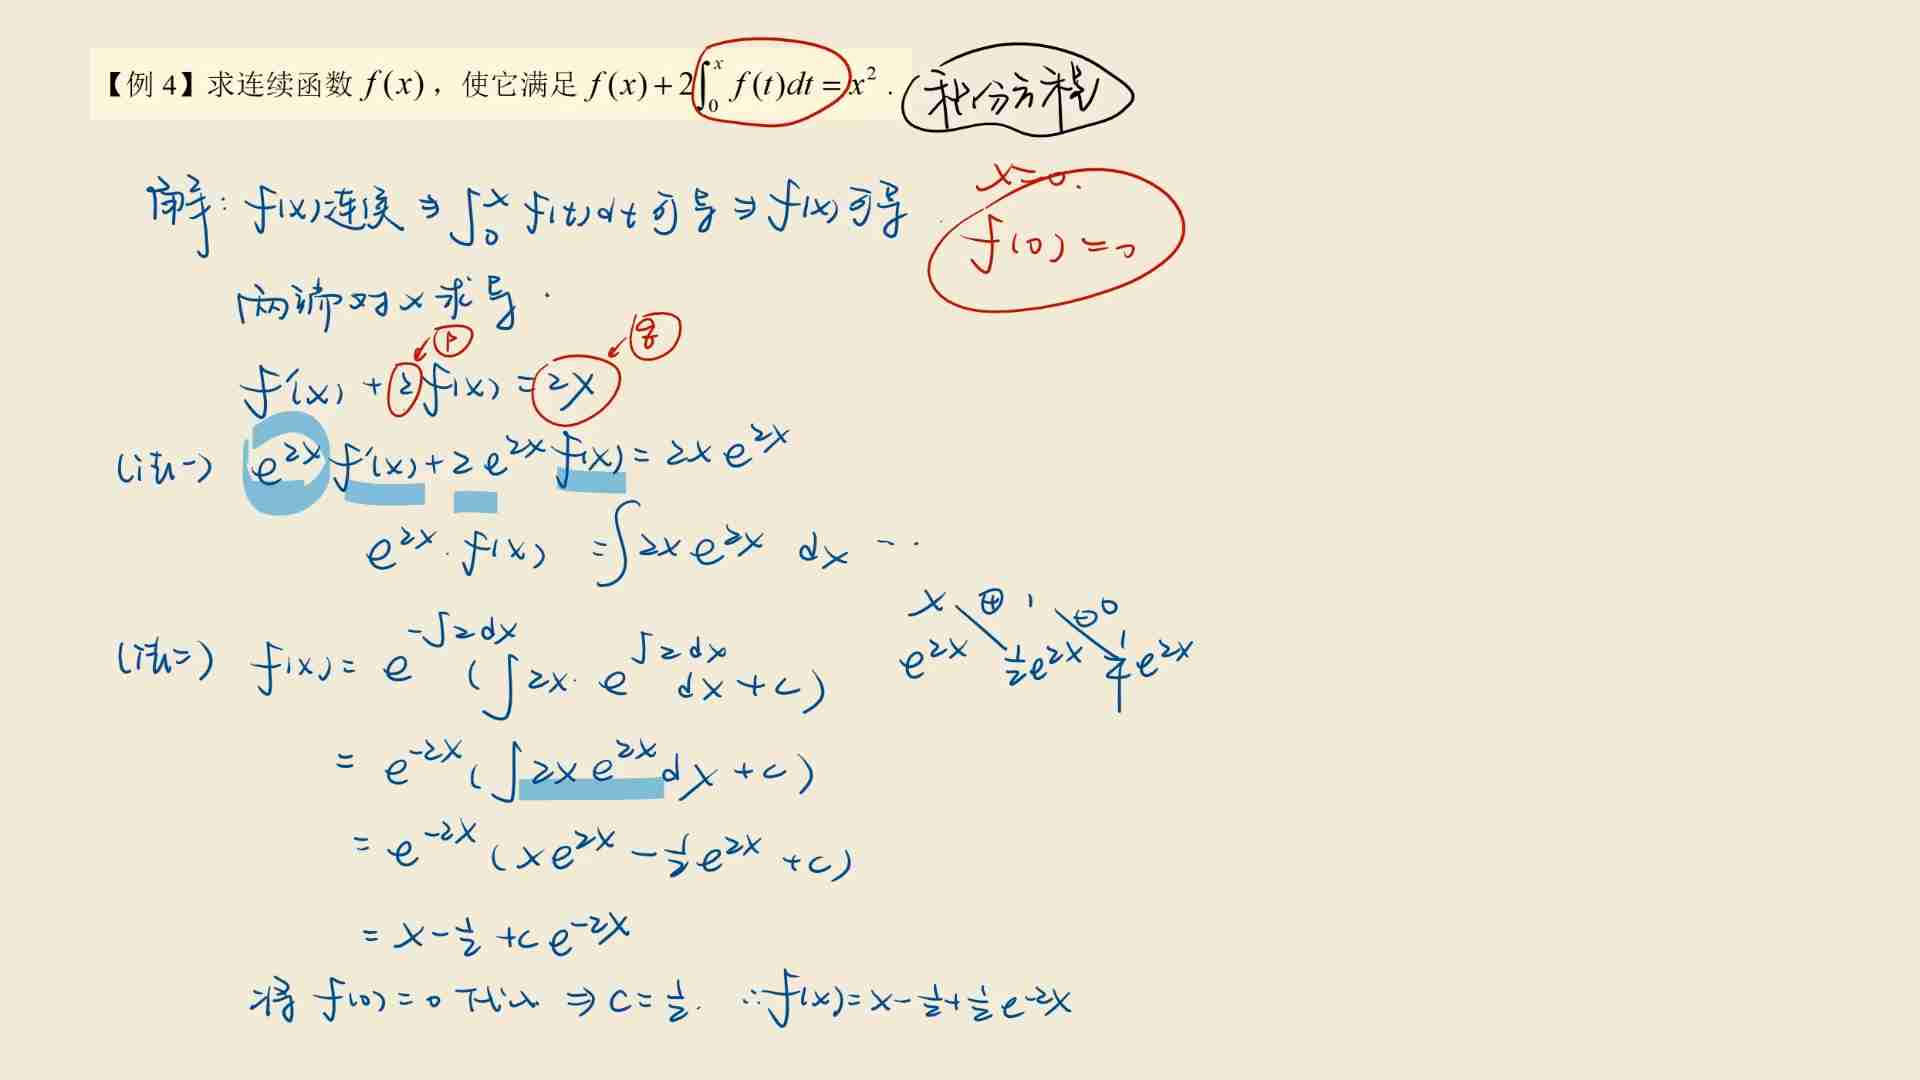 【例 4】求连续函数 f(x)，使它满足 f(x)+2∫₀ˣ f(t)dt = x². (积分方程)
x=0.
解：f(x)连续 ⇒ ∫₀ˣ f(t)dt 可导 ⇒ f(x)可导
f(0)=0
两端对x求导.
p q
f'(x) + 2f(x) = 2x
(法一) e^{2x} f'(x) + 2e^{2x} f(x) = 2x e^{2x}
e^{2x}·f(x) = ∫2x e^{2x} dx ...
x ⊕ 1 ⊖ 0
e^{2x} ½e^{2x} ¼e^{2x}
(法二) f(x) = e^{-∫2dx} (∫2x·e^{∫2dx} dx + c)
= e^{-2x} (∫2x e^{2x} dx + c)
= e^{-2x} (x e^{2x} - ½e^{2x} + c)
= x - ½ + c e^{-2x}
将 f(0)=0 代入 ⇒ C=½. ∴ f(x) = x - ½ + ½e^{-2x}